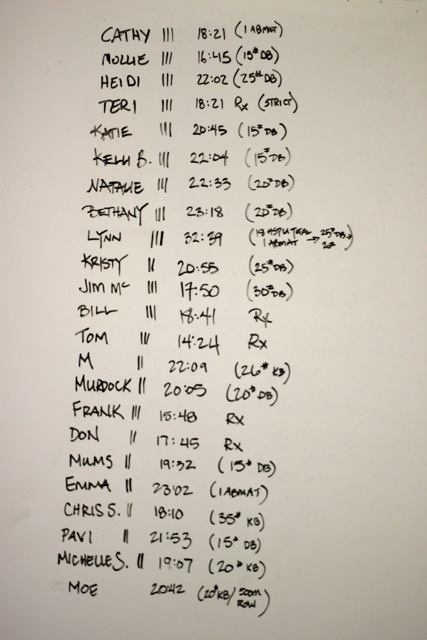 CATHY ||| 18:21 (1 ABMAT)
MOLLIE ||| 16:45 (15# DB)
HEIDI ||| 22:02 (25# DB)
TERI ||| 18:21 Rx (STRICT)
KATIE ||| 20:45 (15# DB)
KELLI B. ||| 22:04 (15# DB)
NATALIE ||| 22:33 (20# DB)
BETHANY ||| 23:18 (20# DB)
LYNN ||| 32:39
1 ABMAT → 25# DB
KRISTY || 20:55 (25# DB)
JIM Mc ||| 17:50 (30# DB)
BILL ||| 18:41 Rx
TOM ||| 14:24 Rx
M || 22:09 (26# KB)
MURDOCK || 20:05 (20# DB)
FRANK ||| 15:48 Rx
DON || 17:45 Rx
MUMS || 19:32 (15# DB)
EMMA || 23:02 (1 ABMAT)
CHRIS S. || 18:10 (35# KB)
PAVI || 21:53 (15# DB)
MICHELLE S. || 19:07 (20# KB)
MOE 20:42 (20# KB/500m
ROW)